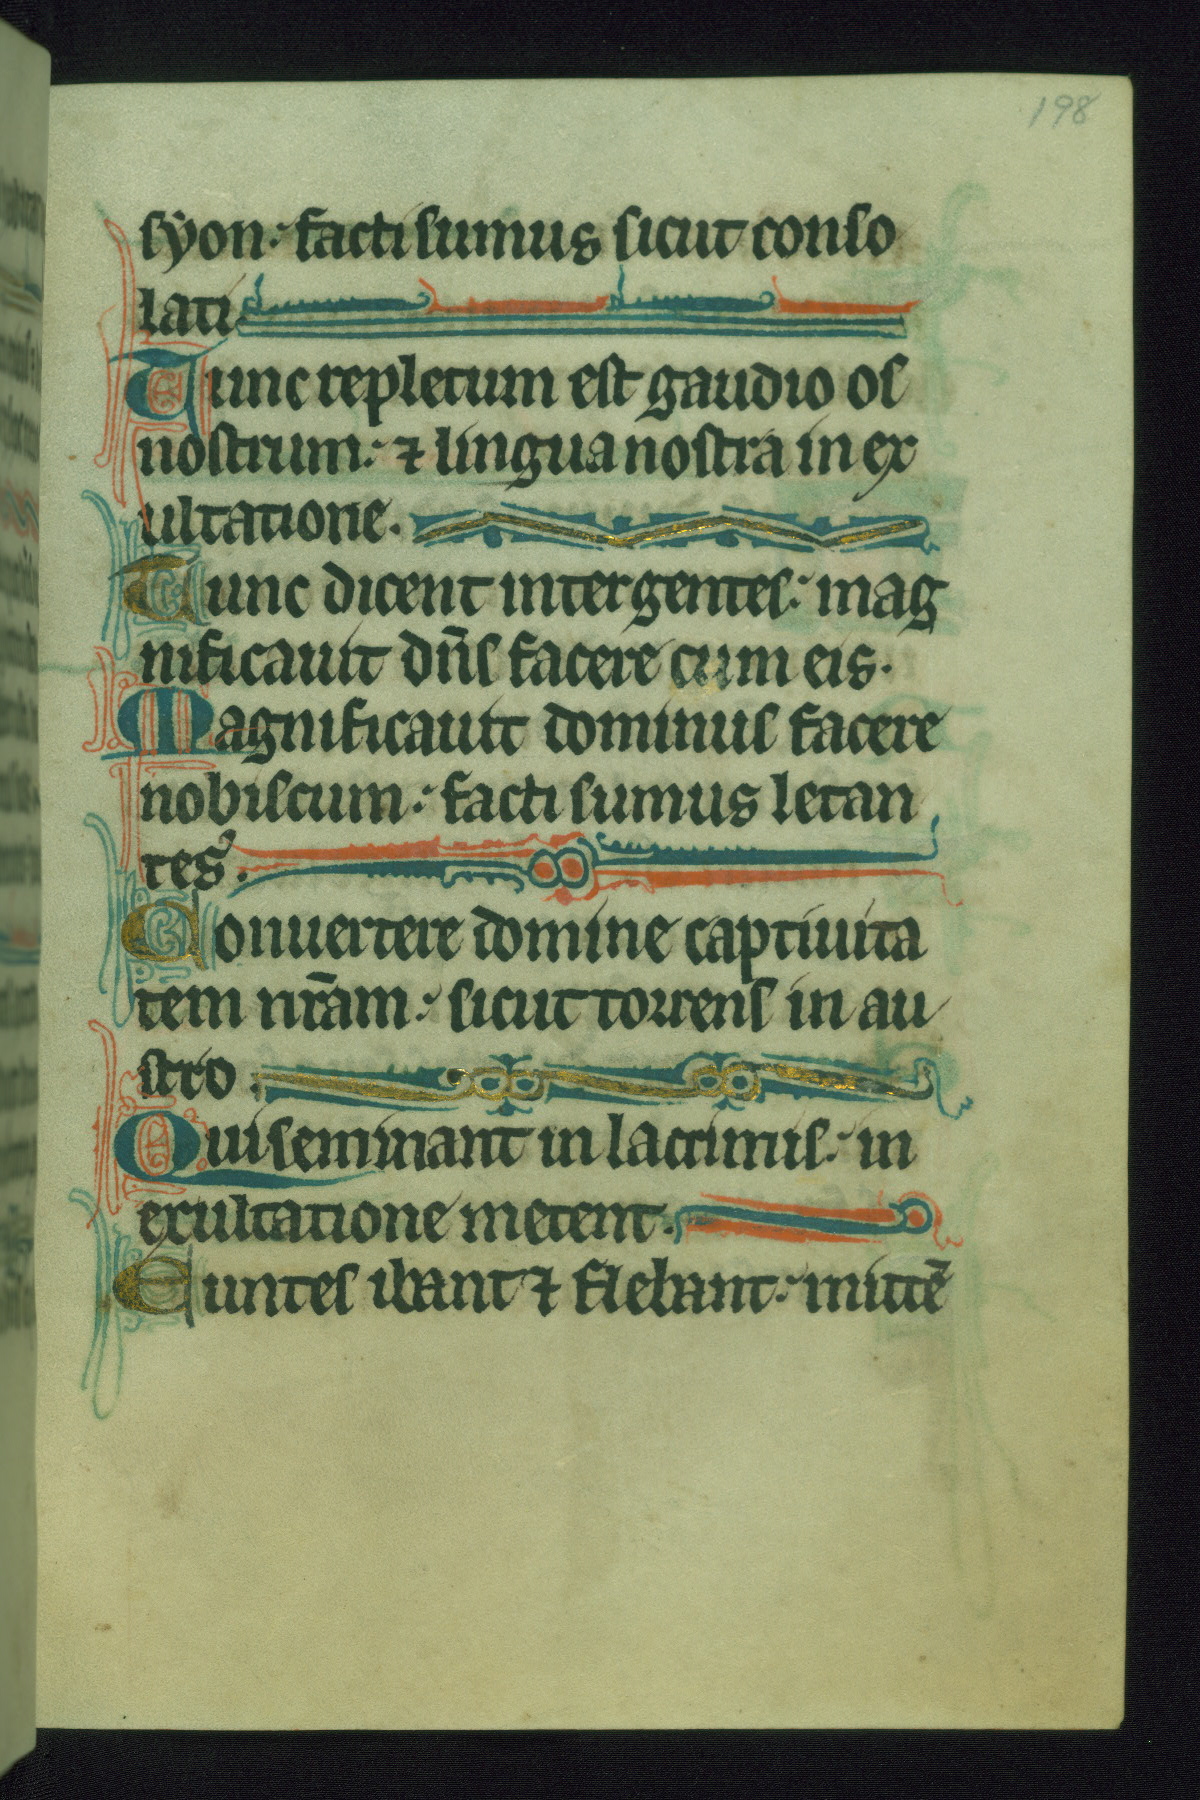 198
syon: facti sumus sicut conso
lati
Tunc repletum est gaudio os
nostrum: ⁊ lingua nostra in ex
ultatione.
Tunc dicent inter gentes: mag
nificauit dn̄s facere cum eis.
Magnificauit dominus facere
nobiscum: facti sumus letan
tes.
Conuertere domine captiuita
tem nr̄am: sicut torrens in au
stro.
Qui seminant in lacrimis: in
exultatione metent.
Euntes ibant ⁊ flebant: mittē